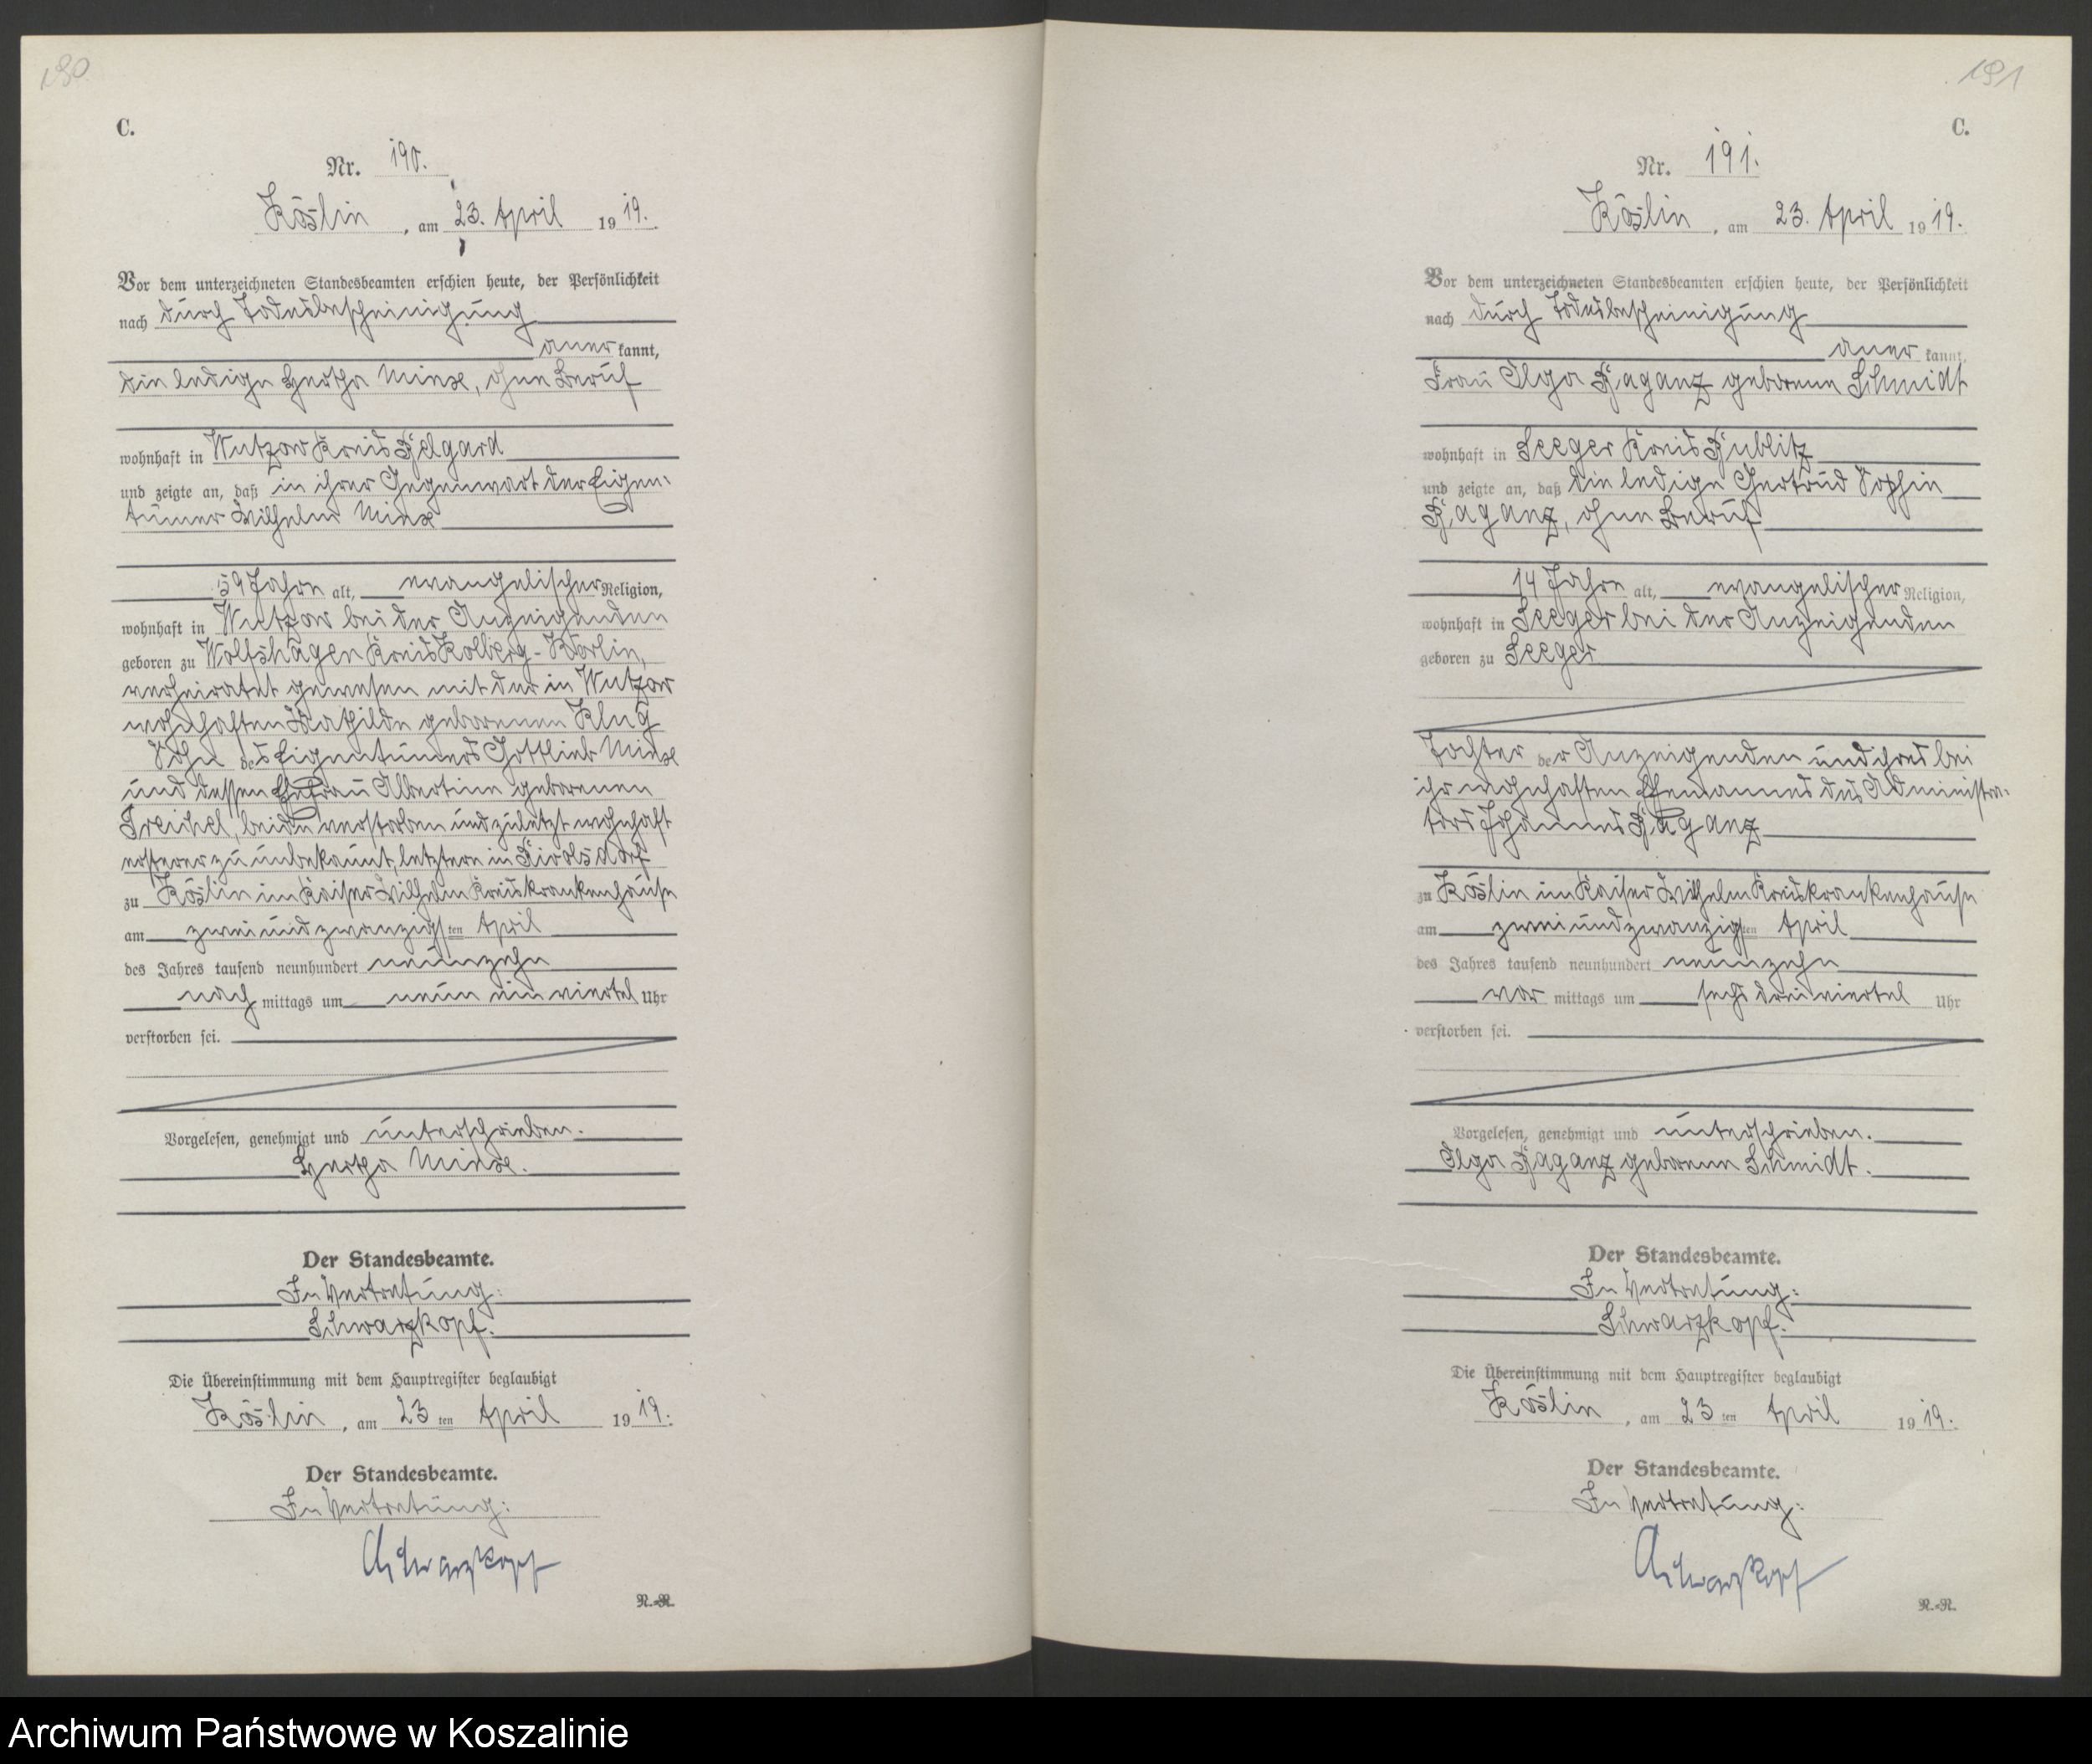 190.
C.
Nr. 190.
Köslin, am 23. April 1919.
Vor dem unterzeichneten Standesbeamten erschien heute, der Persönlichkeit
nach durch Todesbescheinigung
anerkannt,
die ledige Hertha Mieske, ohne Beruf
wohnhaft in Wutzow Kreis Belgard
und zeigte an, daß in ihrer Gegenwart der Eigen-
tümer Wilhelm
59 Jahre alt, evangelischer Religion,
wohnhaft in Wutzow bei der Anzeigenden
geboren zu Wolfshagen Kreis Kolberg-Körlin,
verheiratet gewesen mit der in Wutzow
wohnhaften Mathilde geborenen Klug
Sohn des Eigentümers Gottlieb
und dessen Ehefrau Albertine geborenen
Treichel, beide verstorben und zuletzt wohnhaft
ersterer zu unbekannt, letztere in
zu Köslin im Kaiser Wilhelm Kreiskrankenhause
am zweiundzwanzigsten April
des Jahres tausend neunhundert neunzehn
nachmittags um neun ein viertel Uhr
verstorben sei.
Vorgelesen, genehmigt und unterschrieben.
Hertha
Der Standesbeamte.
In Vertretung:
Schwarzkopf.
Die Übereinstimmung mit dem Hauptregister beglaubigt
Köslin, am 23ten April 1919.
Der Standesbeamte.
In Vertretung:
Schwarzkopf
R.-R.
191
C.
Nr. 191.
Köslin, am 23. April 1919.
Vor dem unterzeichneten Standesbeamten erschien heute, der Persönlichkeit
nach durch Todesbescheinigung
anerkannt,
Frau Olga Baganz geborene Schmidt
wohnhaft in Seeger Kreis Bublitz
und zeigte an, daß die ledige Gertrud Sophie
Baganz, ohne Beruf
14 Jahre alt, evangelischer Religion,
wohnhaft in Seeger bei der Anzeigenden
geboren zu Seeger
Tochter der Anzeigenden und ihres bei
ihr wohnhaften Ehemannes des Administra-
tors Johannes Baganz
zu Köslin im Kaiser Wilhelm Kreiskrankenhause
am zweiundzwanzigsten April
des Jahres tausend neunhundert neunzehn
vormittags um sechs drei viertel Uhr
verstorben sei.
Vorgelesen, genehmigt und unterschrieben.
Olga Baganz geborene Schmidt.
Der Standesbeamte.
In Vertretung:
Schwarzkopf.
Die Übereinstimmung mit dem Hauptregister beglaubigt
Köslin, am 23ten April 1919.
Der Standesbeamte.
In Vertretung:
Schwarzkopf
R.-R.
Archiwum Państwowe w Koszalinie